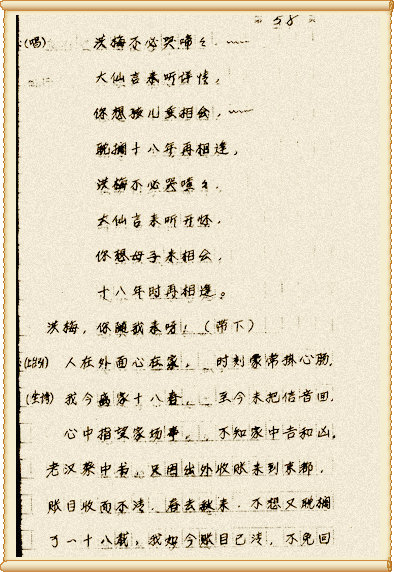 第 58 页
(唱) 洪梅不必哭啼々.
大仙言来听详情,
你想孩儿重相会,
耽搁十八年再相逢,
洪梅不必哭啼々.
大仙言来听开怀,
你想母子来相会,
十八年时再相逢。
洪梅,你随我来呀!(带下)
(上引) 人在外面心在家, 时刻家常掛心肠.
(坐诗) 我今离家十八春, 至今未把信音回.
心中指望家场事, 不知家中吉和凶.
老汉蔡中书. 只因出外收账来到京都,
账目收而不清. 春去秋来. 不想又耽搁
了一十八载, 我如今账目已清, 不免回